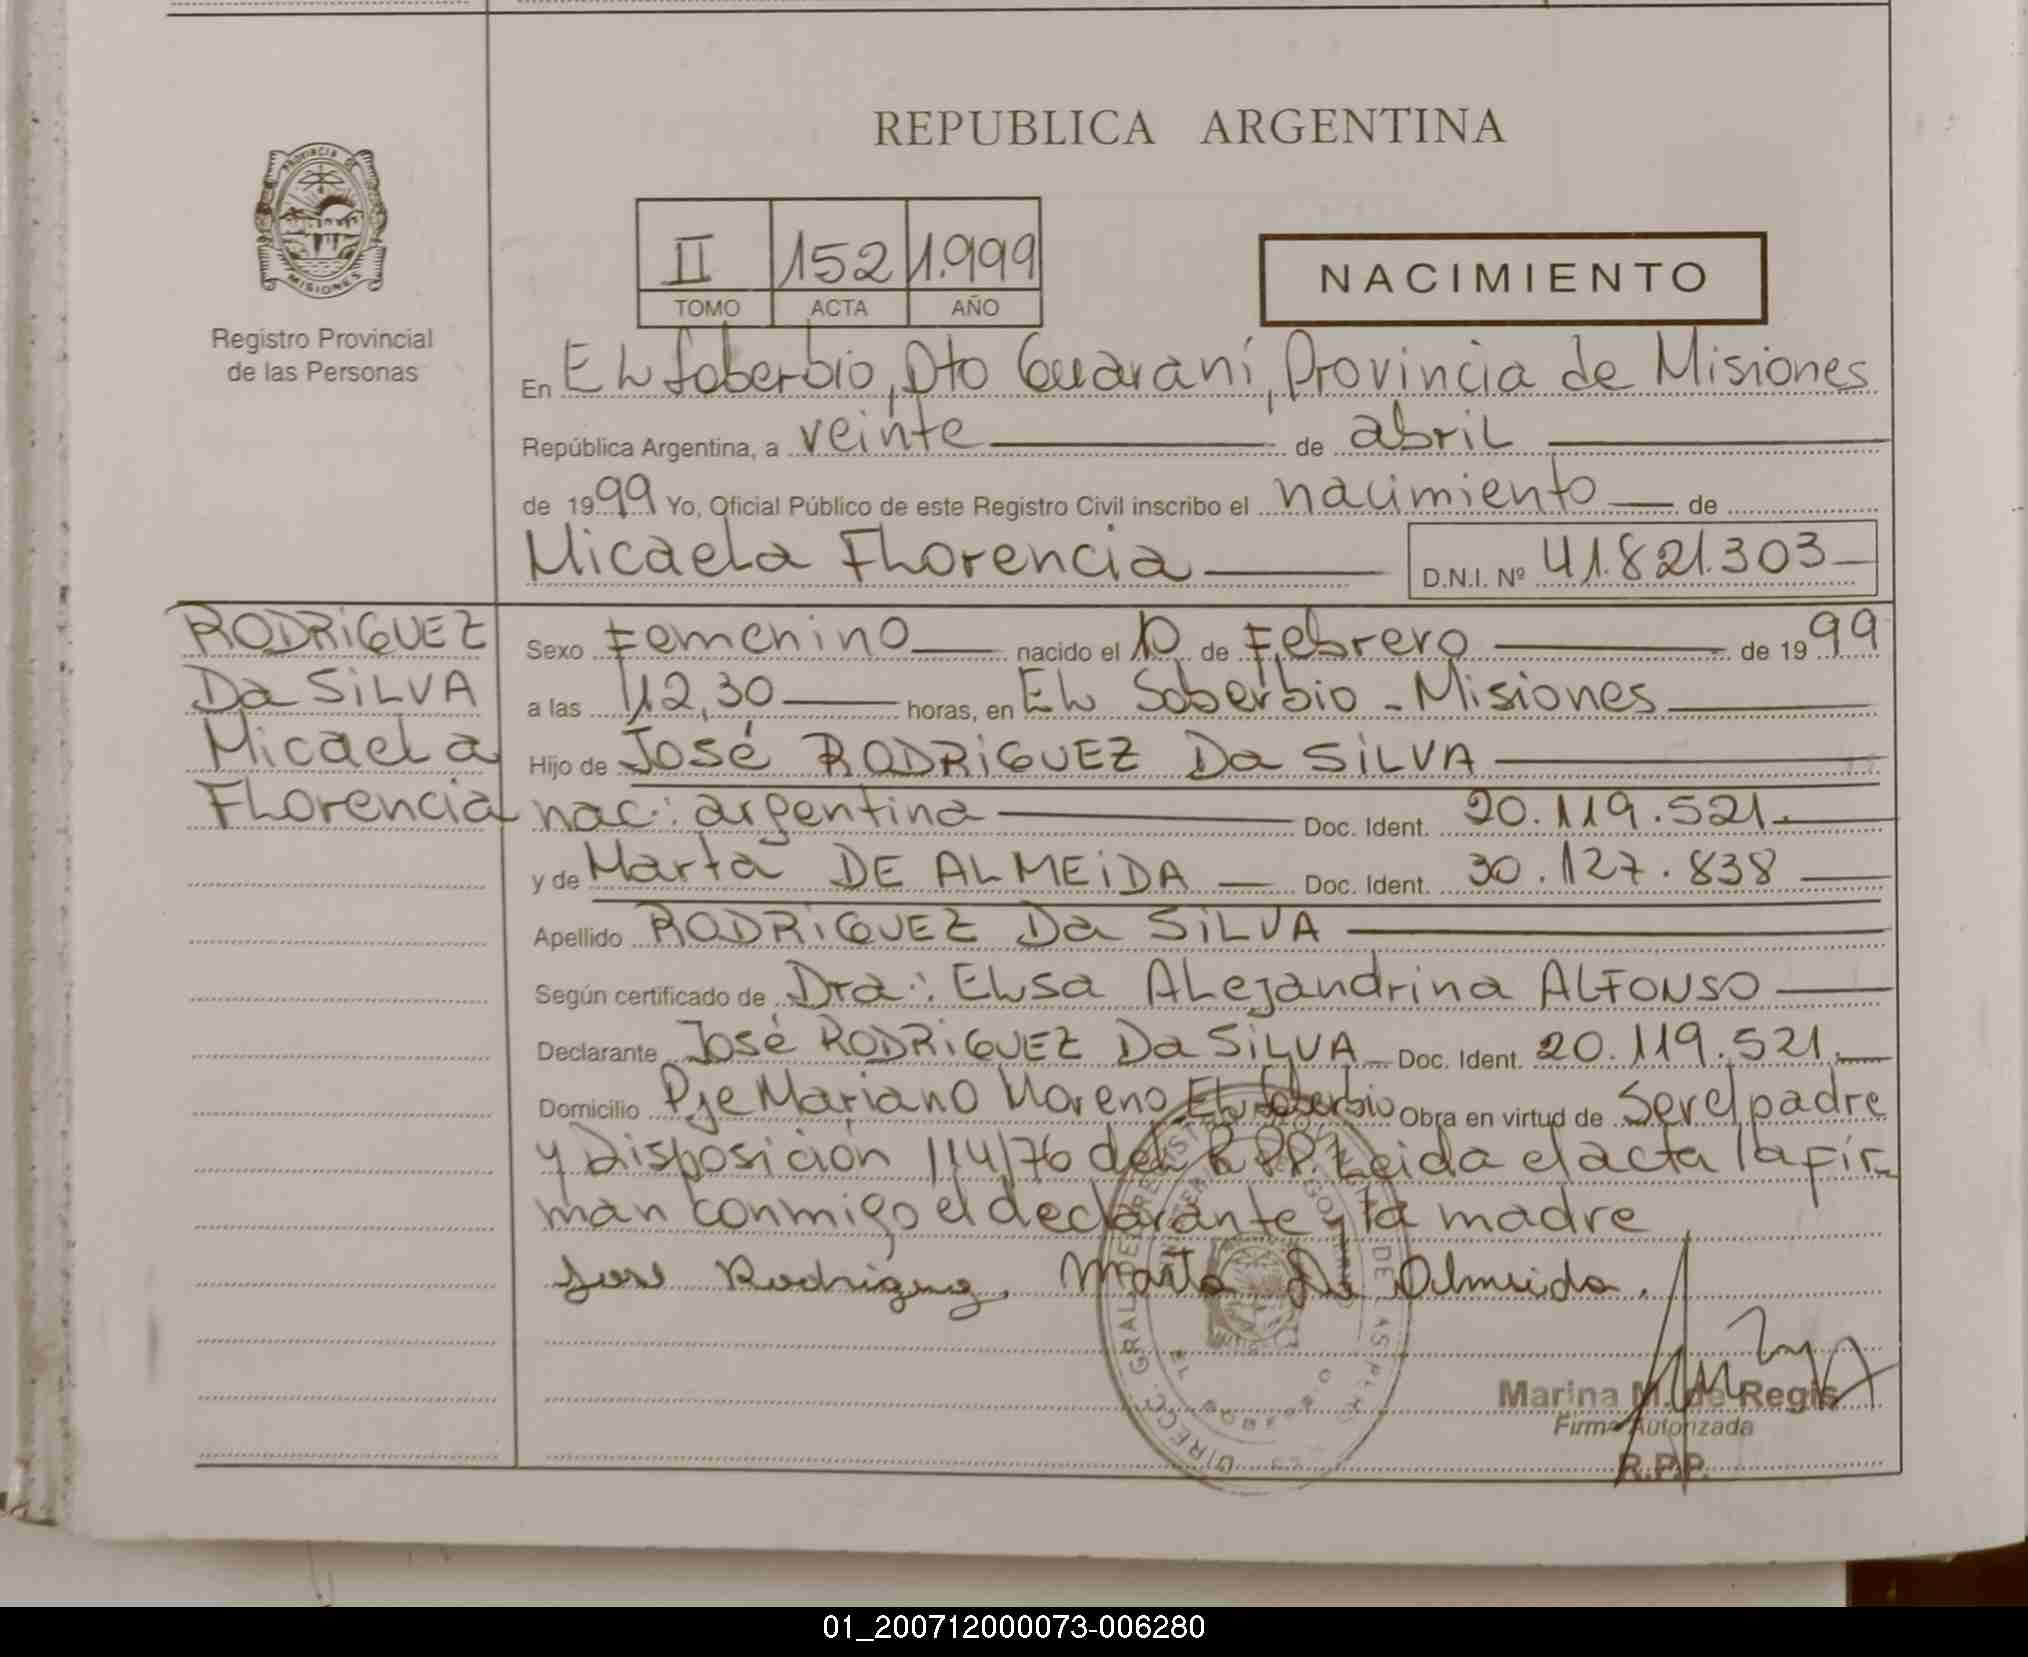 REPUBLICA ARGENTINA
PROVINCIA DE
MISIONES
Registro Provincial
de las Personas
II 152 1.999
TOMO ACTA AÑO
NACIMIENTO
En El Soberbio, Dto Guaraní, Provincia de Misiones
República Argentina, a veinte de abril
de 1999 Yo, Oficial Público de este Registro Civil inscribo el nacimiento de
Micaela Florencia D.N.I. Nº 41.821.303
RODRiGUEZ
Da SiLVA
Micaela
Florencia
Sexo Femenino nacido el 10 de Febrero de 1999
a las 12,30 horas, en El Soberbio - Misiones
Hijo de José RODRiGUEZ Da SiLVA
nac: argentina Doc. Ident. 20.119.521.
y de Marta DE ALMEiDA Doc. Ident. 30.127.838
Apellido RODRiGUEZ Da SiLVA
Según certificado de Dra: Elsa Alejandrina ALFONSO
Declarante José RODRiGUEZ Da SiLVA Doc. Ident. 20.119.521.
Domicilio Pje Mariano Moreno El Soberbio Obra en virtud de Ser el padre
y Disposición 114/76 del R.P.P. Leida el acta la fir-
man conmigo el declarante y la madre
Jose Rodriguez. Marta De Almeida.
Marina M. de Regis
Firma Autorizada
R.P.P.
01_200712000073-006280